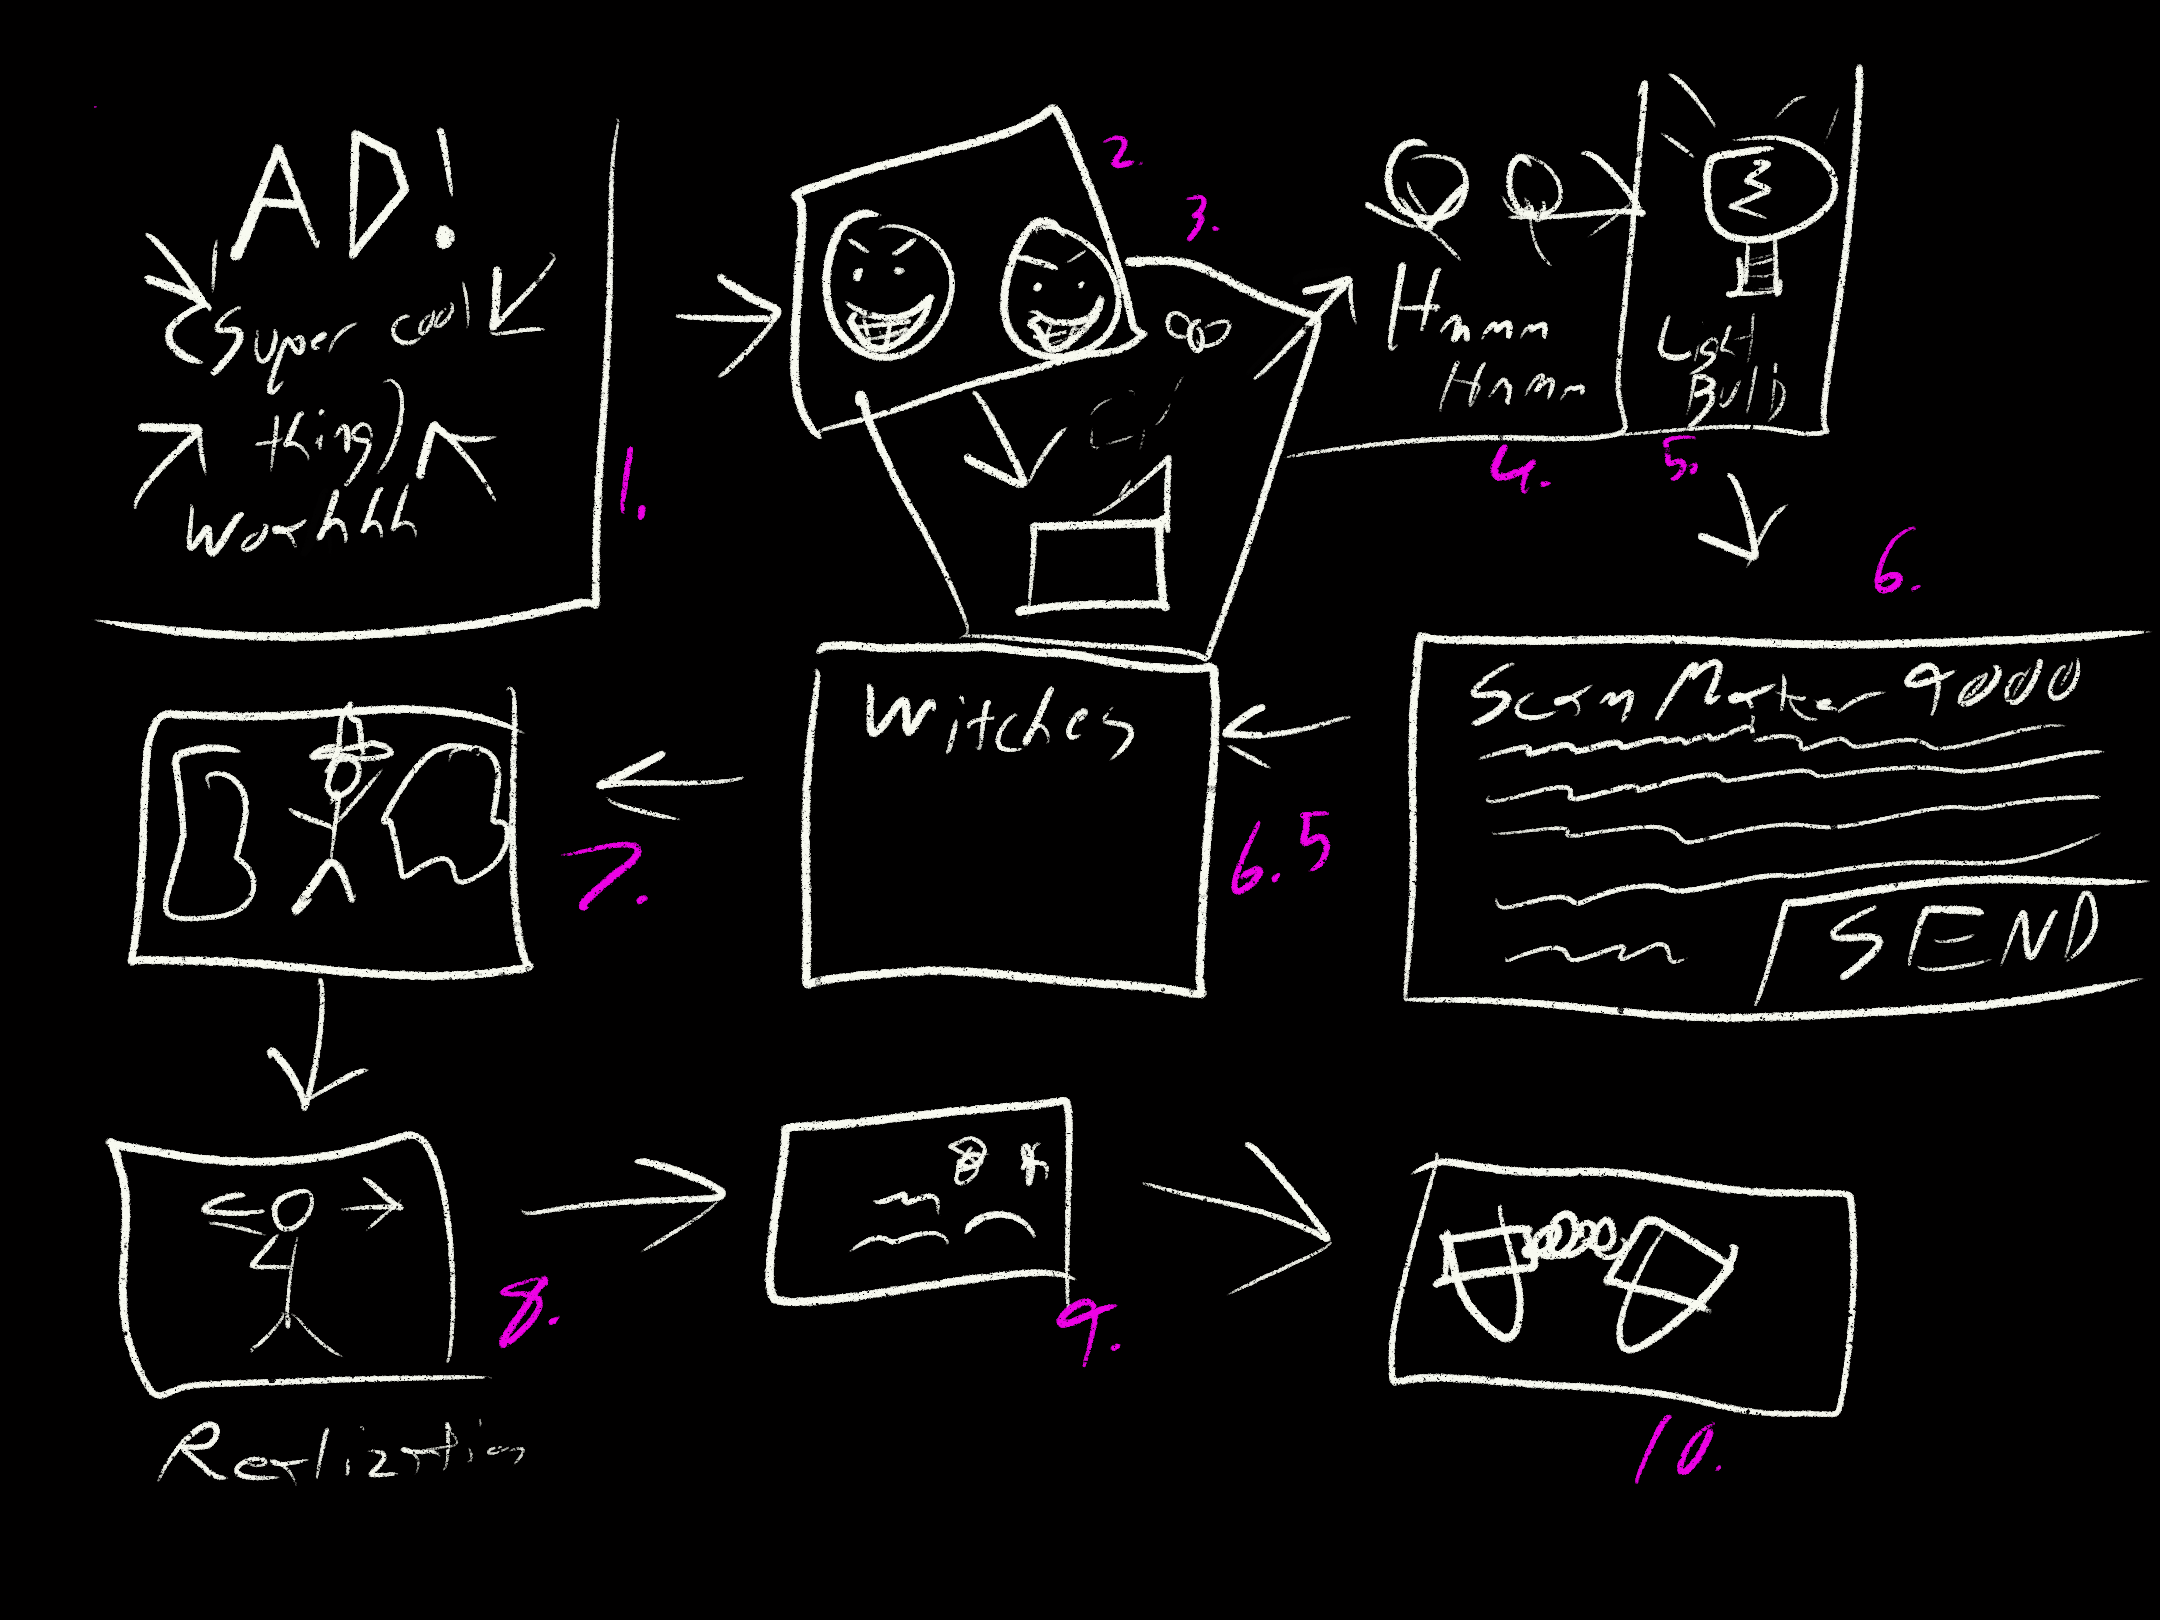 AD!
(Super cool
thing)
Woahhh
1.
2.
3.
Hmmm
Hmmm
4.
Light
Bulb
5.
6.
Scam Maker 9000
SEND
Witches
6.5
7.
8.
Realization
9.
10.